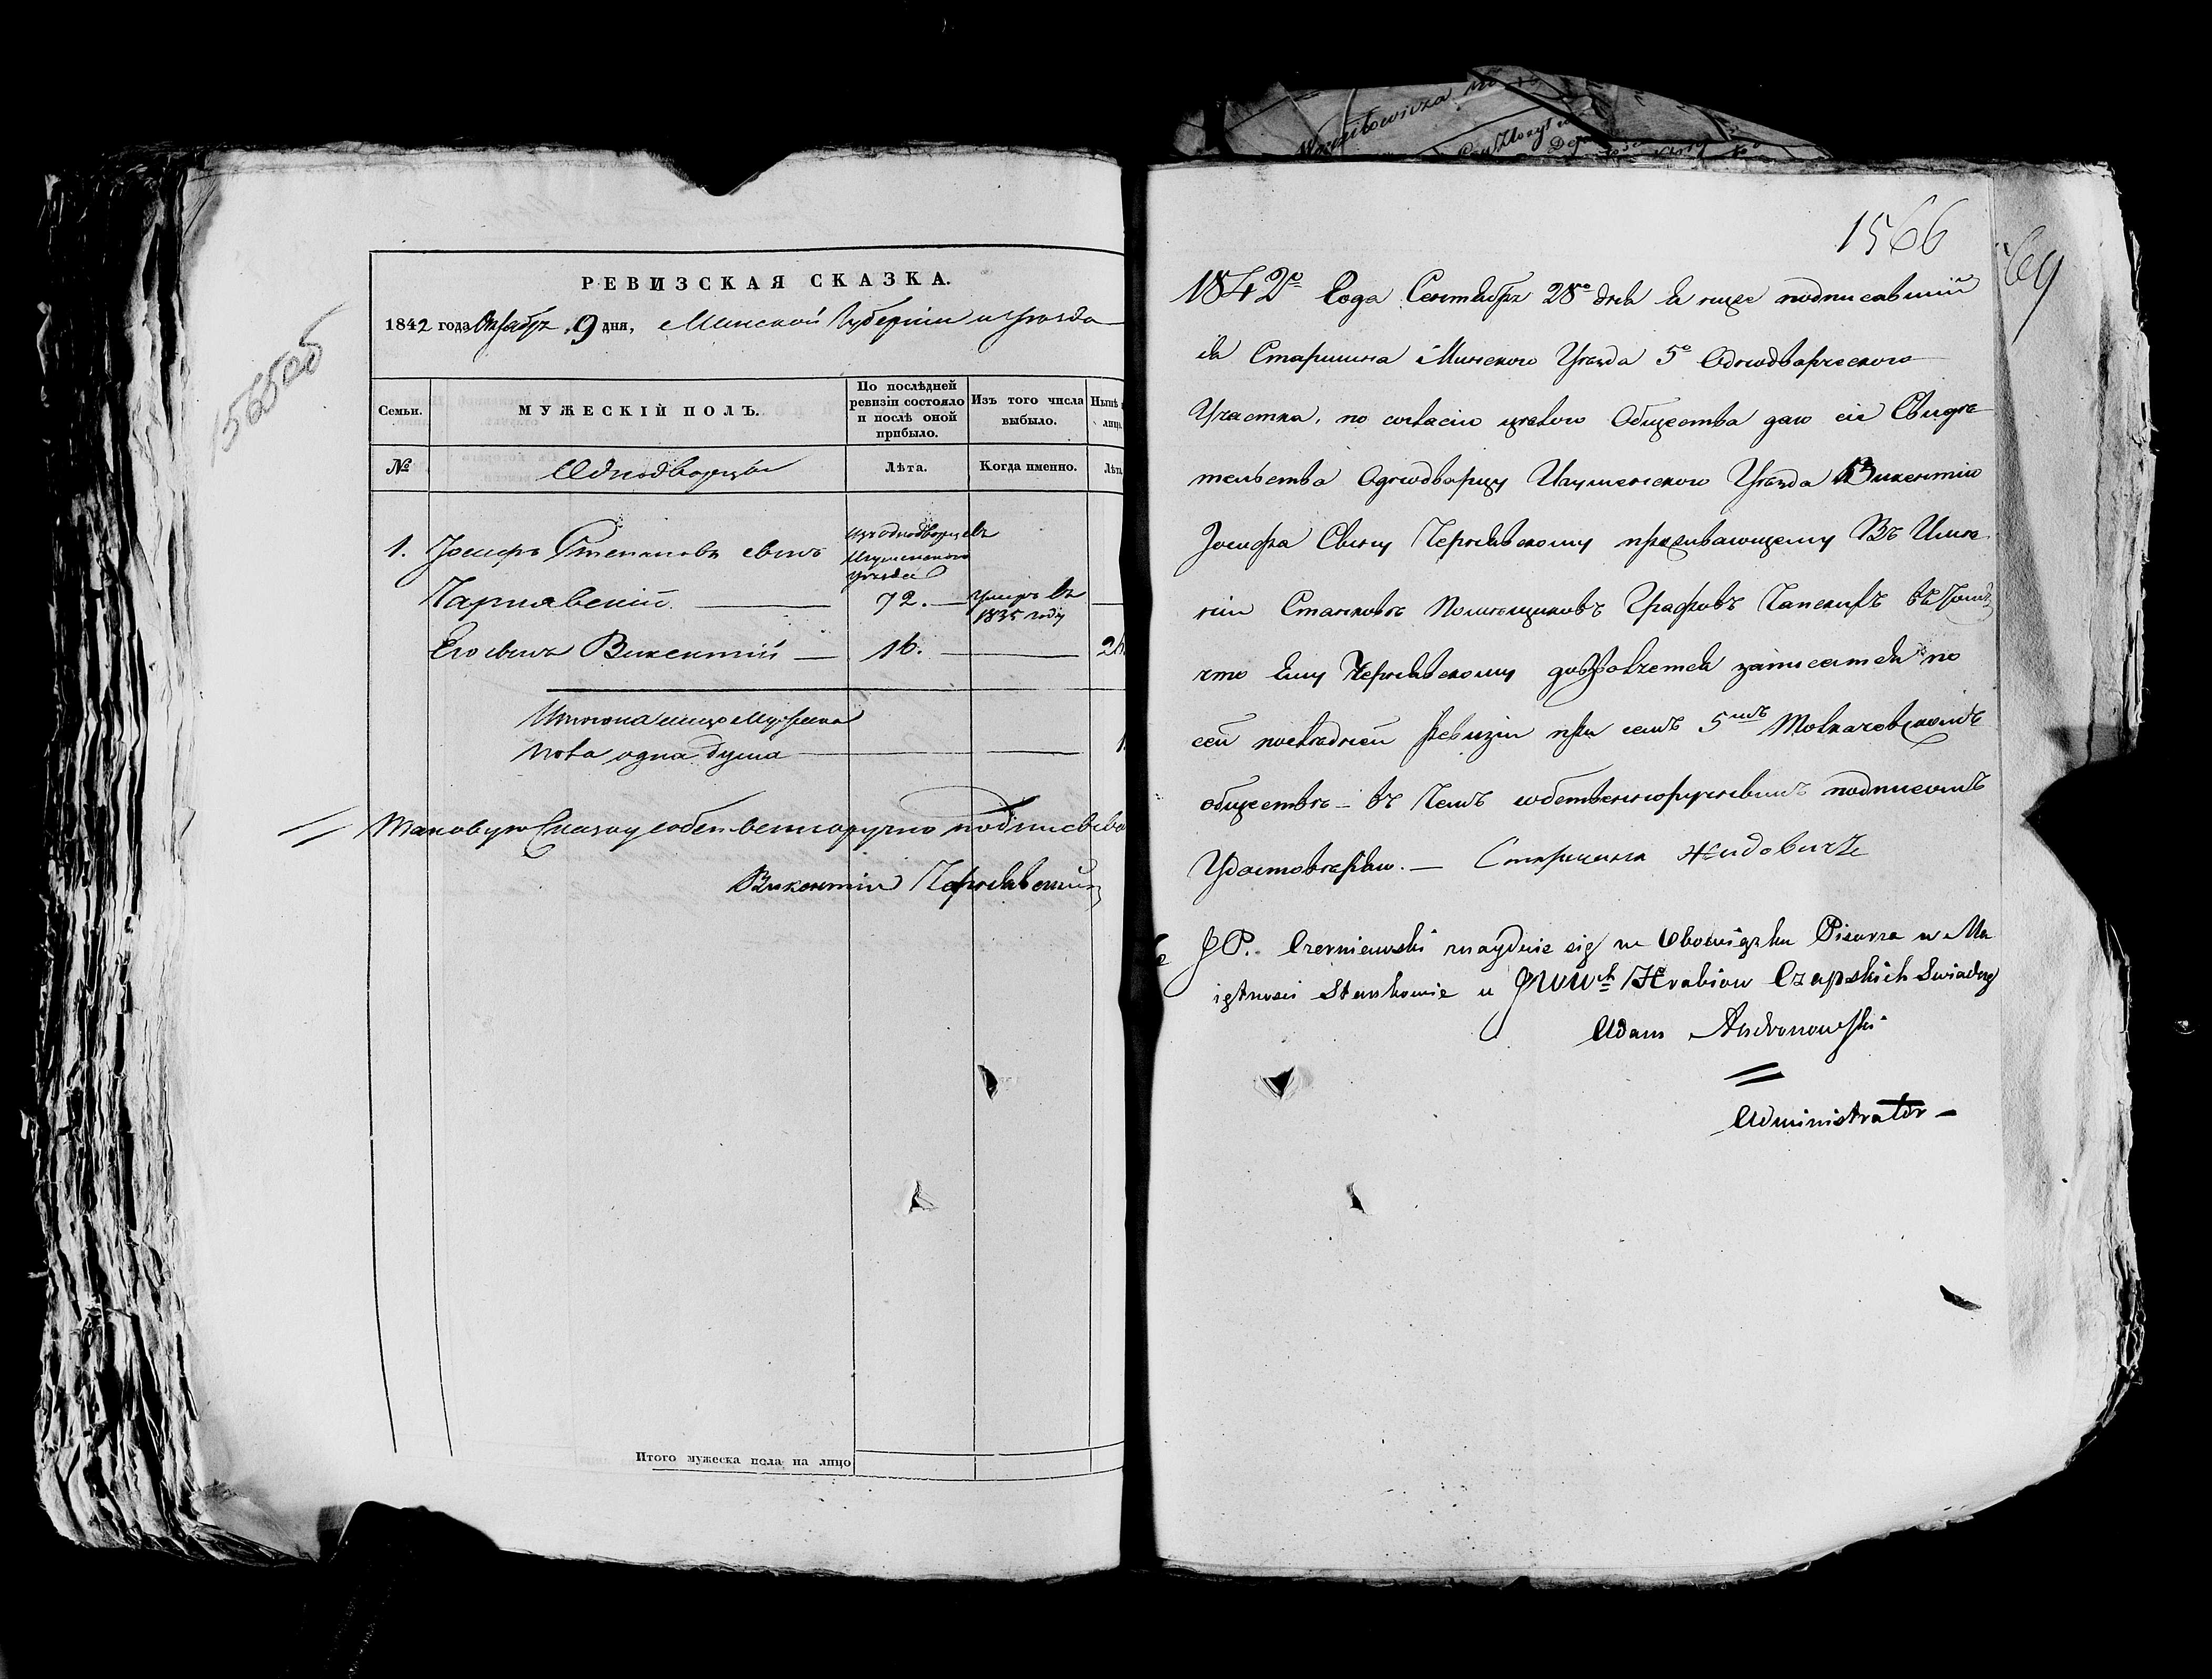 1565об
РЕВИЗСКАЯ СКАЗКА.
1842 года Октября 9 дня, Минской Губернии и уезда
Семьи.
МУЖЕСКІЙ ПОЛЪ.
По послѣдней ревизіи состояло и послѣ оной прибыло.
Изъ того числа выбыло.
Нынѣ
лицо
№
Однодворцы
Лѣта.
Когда именно.
Лѣт
изъ однодворцевъ
Игуменского
уезда
1. Іосифъ Степановъ сынъ
Чарнявскій 72. умеръ въ
1835 году
Его сынъ Викентій 16.
Итого на лицо Мужеска
пола одна душа 1
Таковую Сказку собственноручно подписалъ
Викентій Чернявскій
Итого мужеска пола на лицо
1566
69
1842го Года Сентября 28го дня я ниже подписавший
ся Старшина Минского Уезда 5го Однодворческого
Участка, по согласию целого Общества даю сіе Свиде
тельство Однодворцу Игуменского Уезда Викентию
Іосифа Сыну Чернявскому проживающему Въ Име
нии Станковѣ Помѣщиковъ Графовъ Чапскихъ въ томъ
что Ему Чернявскому дозволяется записатся по
сей последней Ревизіи при семъ 5мъ Толкачовскомъ
обществѣ въ Чемъ собственноручнымъ подписомъ
Удостоверяю. Старшина Жидовичъ
J P. Czerniewski znayduie się w Obowiązku Pisarza w Ma
iętnosci Stankowie u JWWch Hrabiow Czapskich Swiadczę
Adam Andronowski
Administrator